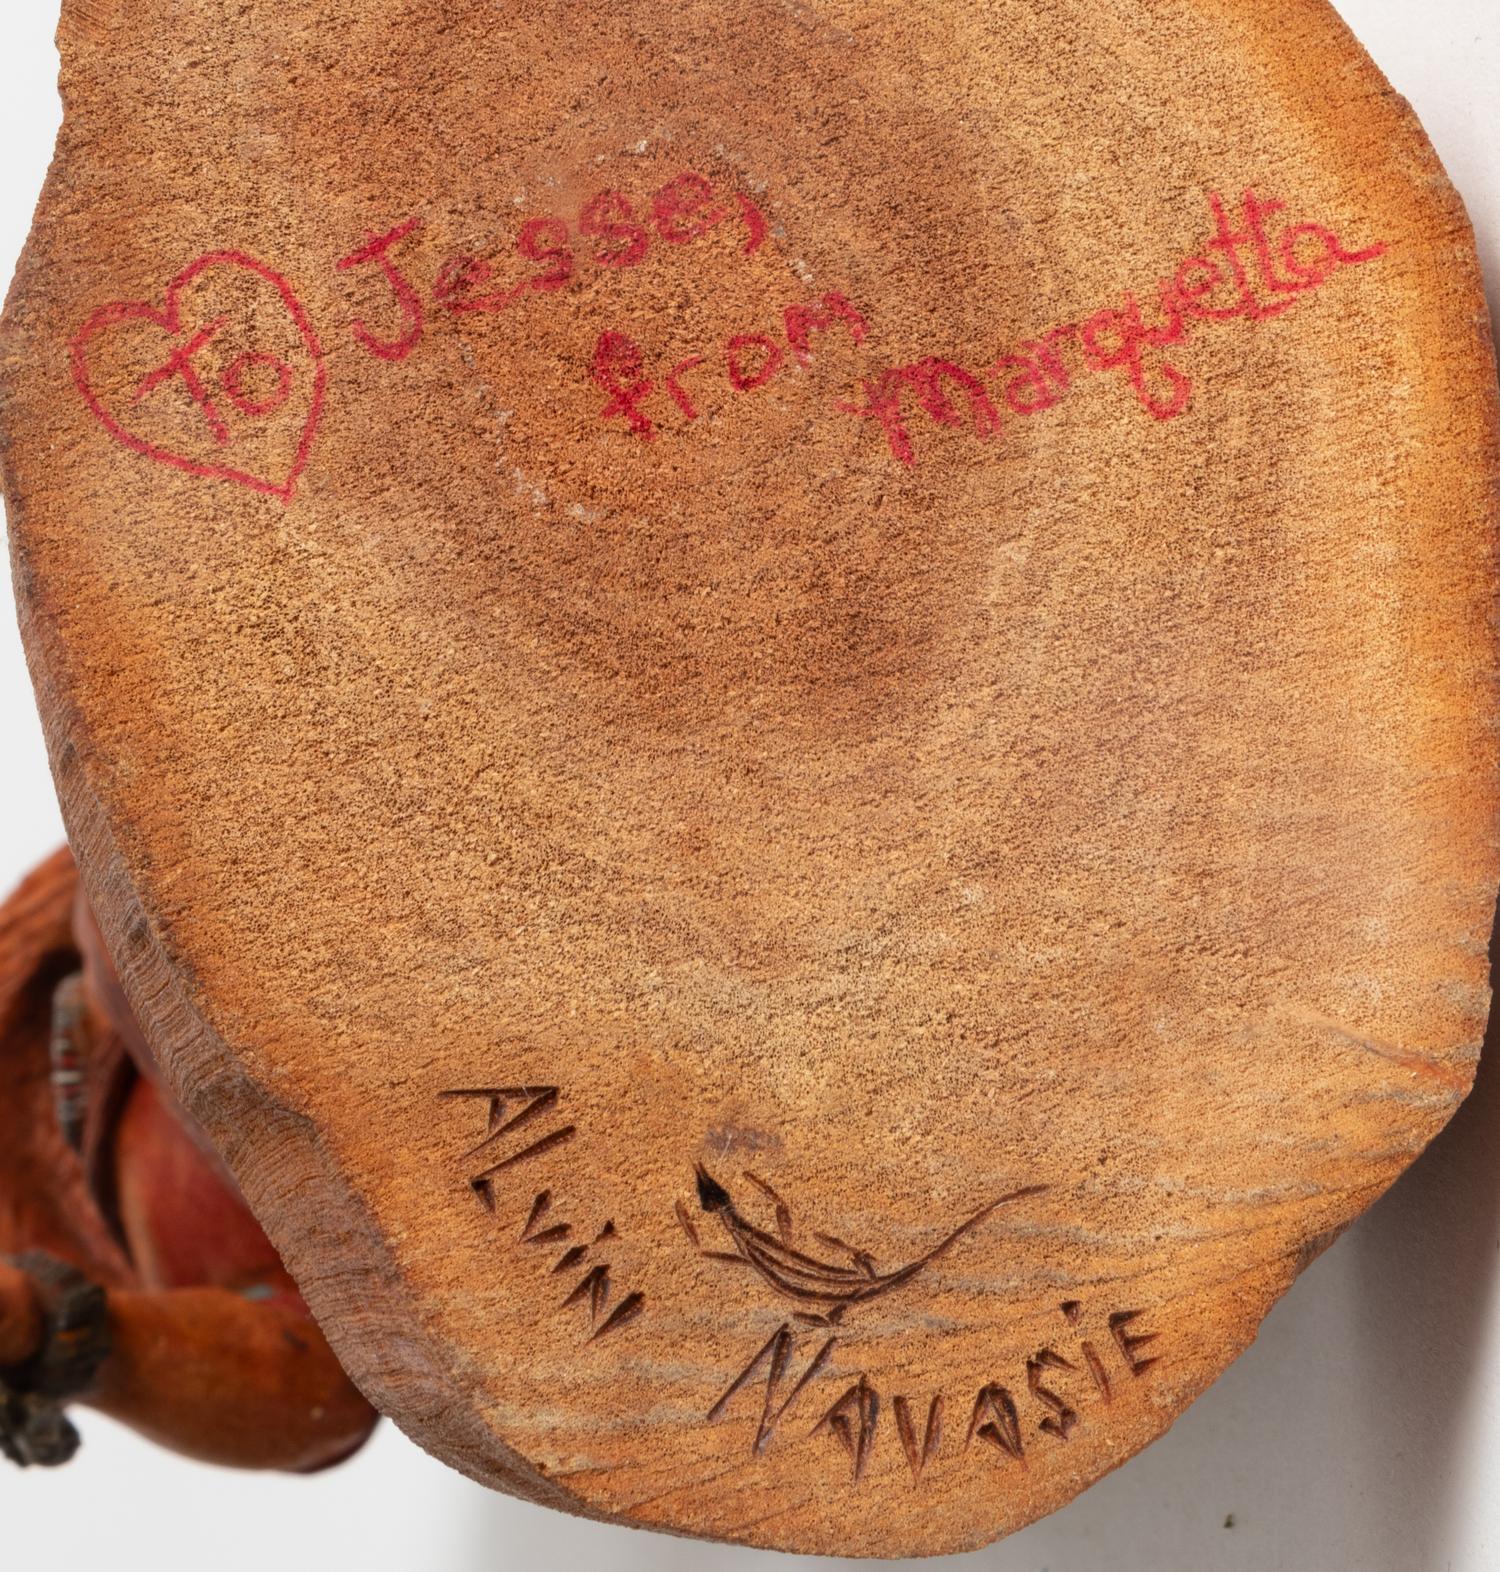 To Jesse,
from Marquetta
ALvin
NAVASiE